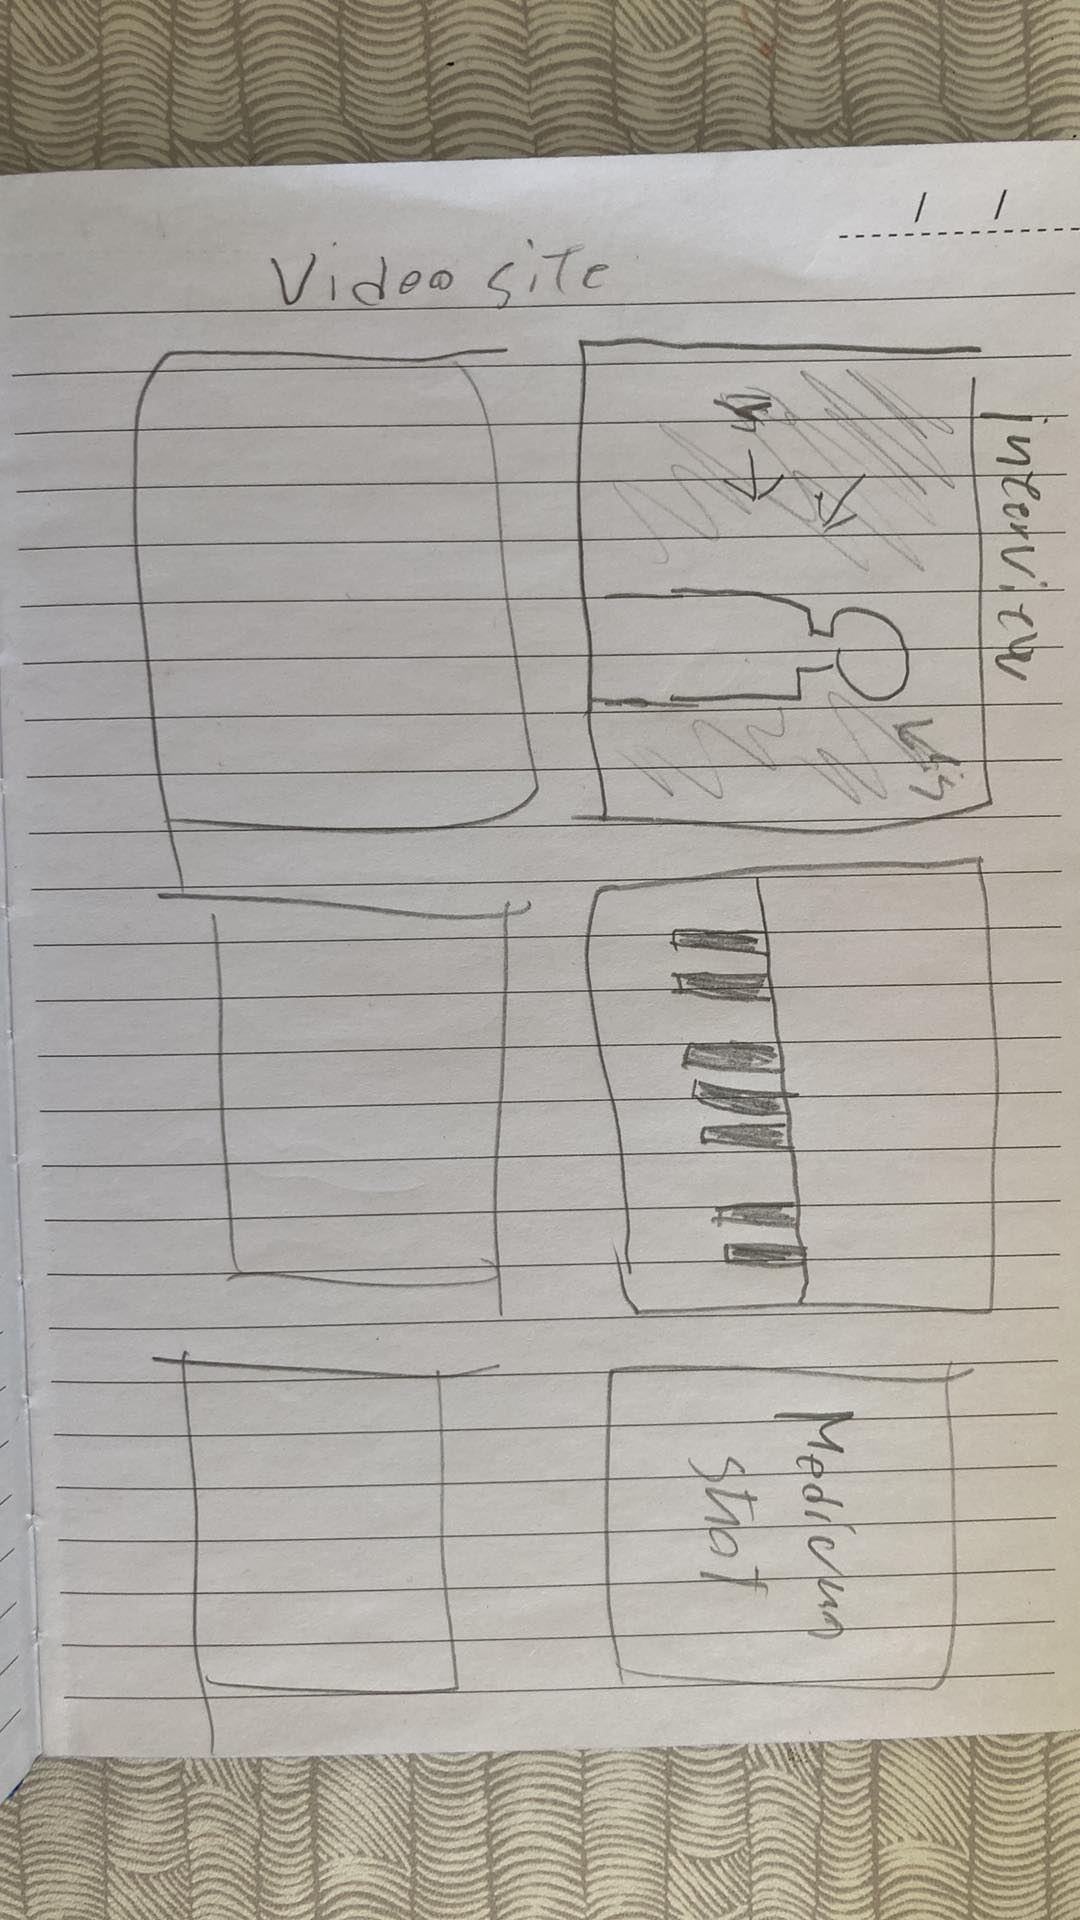 Video site
Interview
Medium
shot